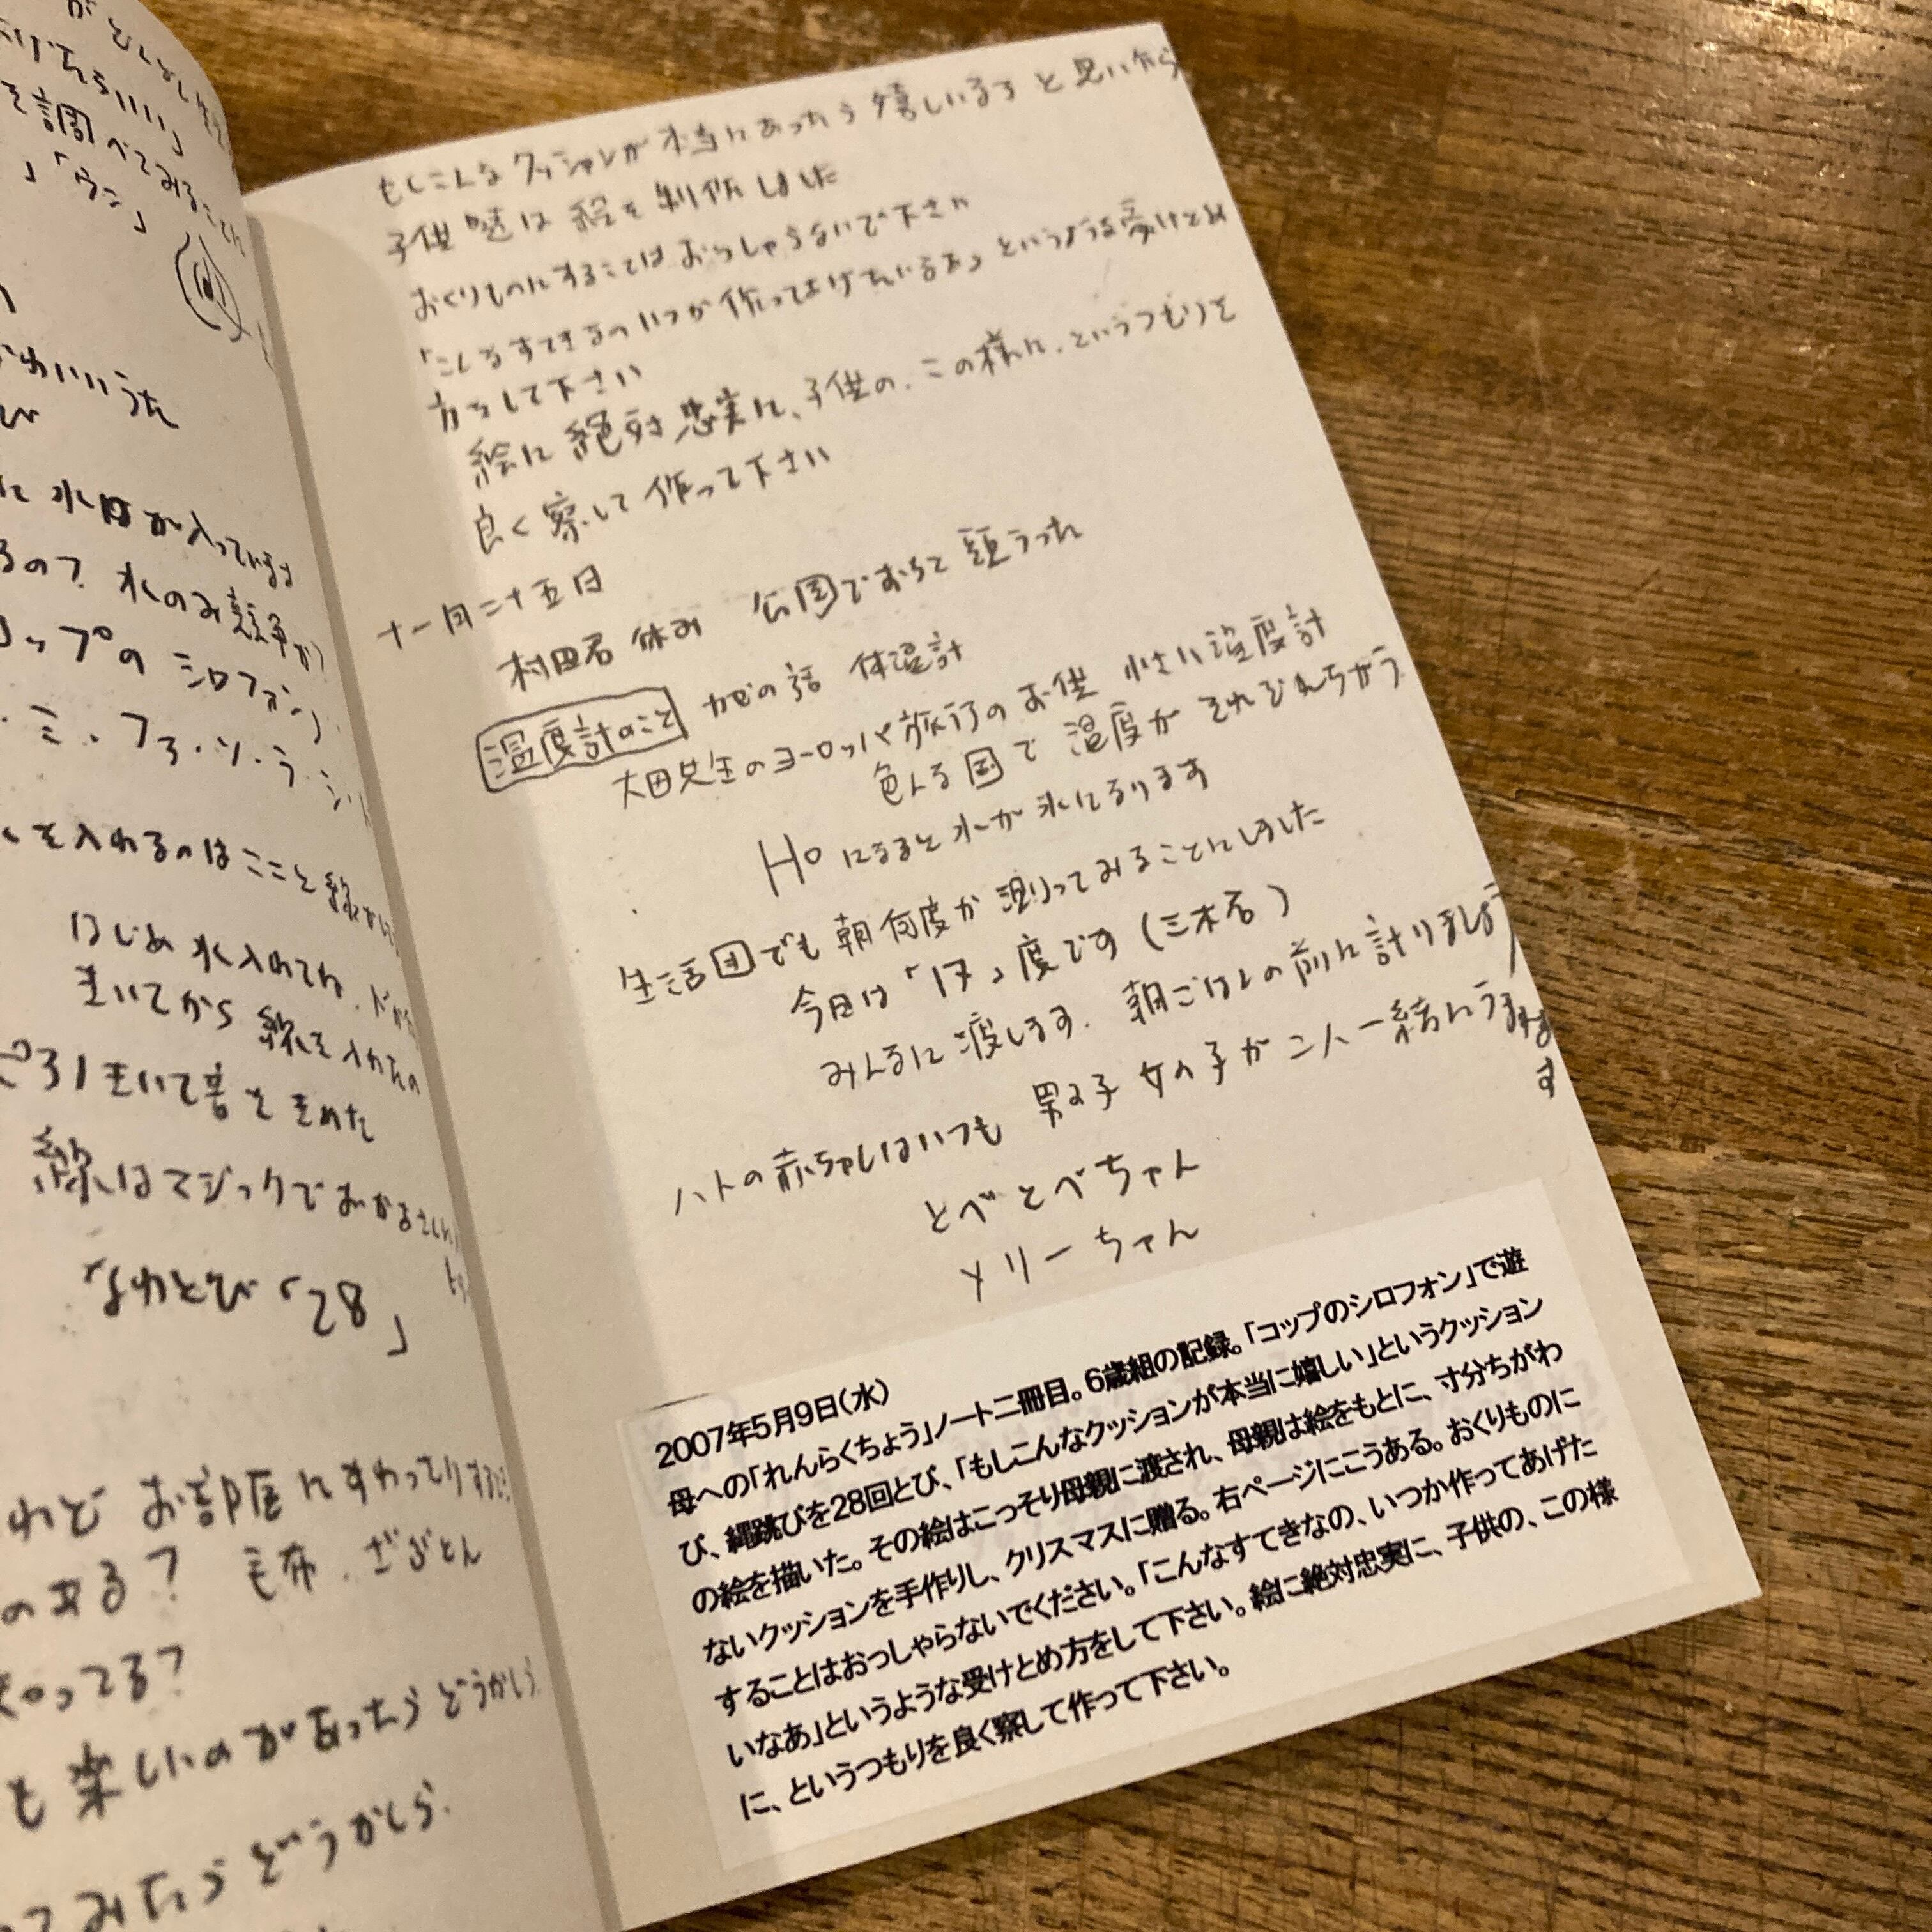 を調べてみる
かわいいうた
水が入っている
るの？ 水のみ
コップの シロフォン
ミ・ファ・ソ・ラ・シ
を入れるのはここと線
はじめ水入れてね
きいてから 線を入れたの
きいて音をきめた
線はマジックで
なわとび「28」
れど お部屋にすわって
のある？ 毛布．ざぶとん
知ってる？
も楽しいのがあったらどうかしら
てみたらどうかしら．
もしこんなクッションが本当にあったら嬉しいなあと思いながら
子供達は絵を制作しました
おくりものにすることはおっしゃらないで下さい
「こんなすてきなの いつか作ってあげたいなあ」というような受けとめ
方をして下さい
絵に絶対忠実に、子供の、この様に、というつもりを
良く察して作って下さい
十一月二十五日
村田君 休み 公園でおちて頭うった
温度計のこと カゼの話 体温計
大田先生のヨーロッパ旅行のお供 小さい温度計
色んな国で 温度がそれぞれちがう
になると水が氷になります
生活団でも朝何度か測ってみることにしました
今日は「17」度です（三木君）
みんなに渡します．朝ごはんの前に計りましょう
ハトの赤ちゃんはいつも 男の子 女の子が二人一緒にうまれます
とべとべちゃん
メリーちゃん
2007年5月9日（水）
母への「れんらくちょう」ノート二冊目。6歳組の記録。「コップのシロフォン」で遊
び、縄跳びを28回とび、「もしこんなクッションが本当に嬉しい」というクッション
の絵を描いた。その絵はこっそり母親に渡され、母親は絵をもとに、寸分ちがわ
ないクッションを手作りし、クリスマスに贈る。右ページにこうある。おくりものに
することはおっしゃらないでください。「こんなすてきなの、いつか作ってあげた
いなあ」というような受けとめ方をして下さい。絵に絶対忠実に、子供の、この様
に、というつもりを良く察して作って下さい。